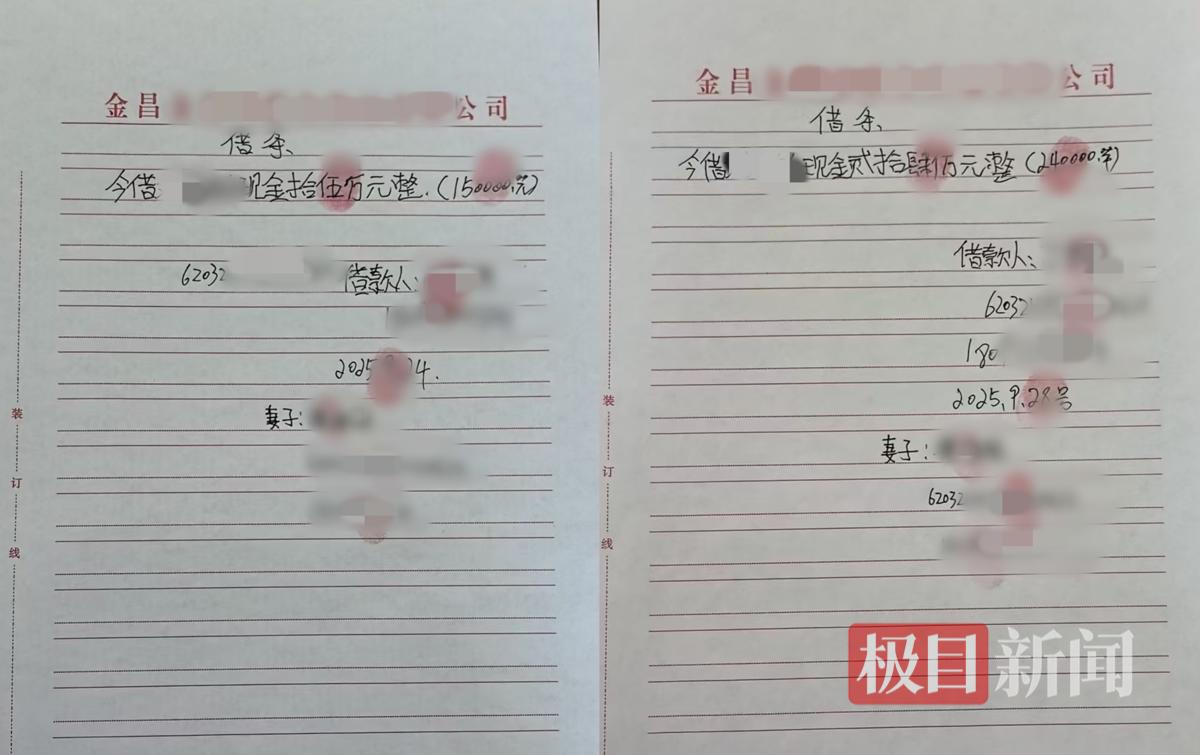 金昌 公司
借条
今借 现金拾伍万元整.(150000.元)
62032 借款人:
2025 24.
妻子:
装
订
线
金昌 公司
借条
今借 现金贰拾肆万元整(240000.元)
借款人:
62032
180
2025.9.28号
妻子:
62032
装
订
线
极目新闻